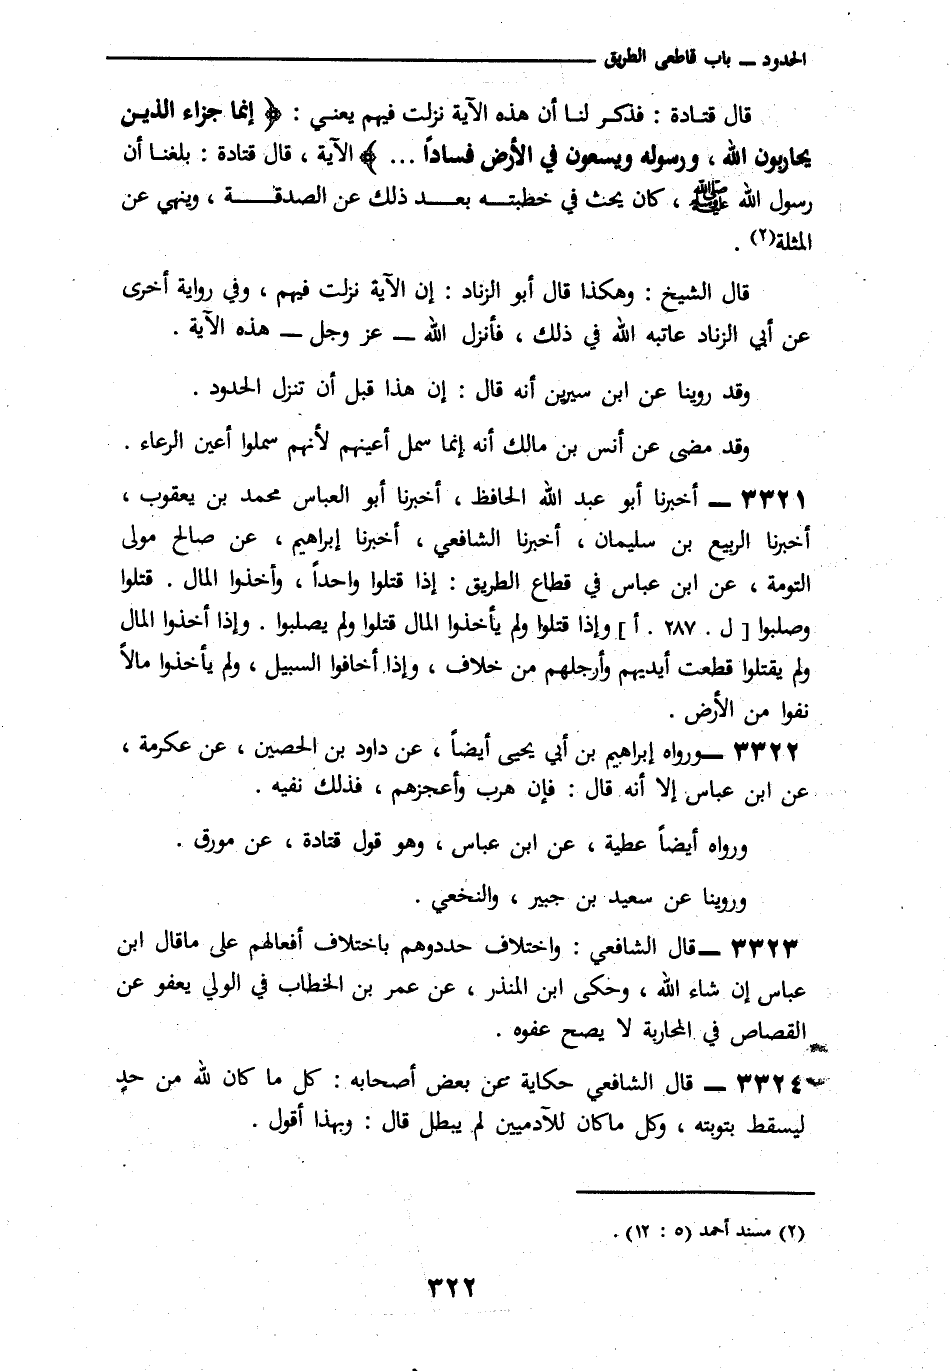 الحدود ــ باب قاطعي الطريق
قال قتادة : فذكر لنا أن هذه الآية نزلت فيهم يعني : ﴿ إنما جزاء الذين
يحاربون الله ، ورسوله ويسعون في الأرض فساداً ... ﴾ الآية ، قال قتادة : بلغنا أن
رسول الله ﷺ ، كان يحث في خطبته بعد ذلك عن الصدقة ، وينهي عن
المثلة(٢) .
قال الشيخ : وهكذا قال أبو الزناد : إن الآية نزلت فيهم ، وفي رواية أخرى
عن أبي الزناد عاتبه الله في ذلك ، فأنزل الله ــ عز وجل ــ هذه الآية .
وقد روينا عن ابن سيرين أنه قال : إن هذا قبل أن تنزل الحدود .
وقد مضى عن أنس بن مالك أنه إنما سمل أعينهم لأنهم سملوا أعين الرعاء .
٣٣٢١ ــ أخبرنا أبو عبد الله الحافظ ، أخبرنا أبو العباس محمد بن يعقوب ،
أخبرنا الربيع بن سليمان ، أخبرنا الشافعي ، أخبرنا إبراهيم ، عن صالح مولى
التومة ، عن ابن عباس في قطاع الطريق : إذا قتلوا واحداً ، وأخذوا المال . قتلوا
وصلبوا [ ل . ٢٨٧ . أ ] وإذا قتلوا ولم يأخذوا المال قتلوا ولم يصلبوا . وإذا أخذوا المال
ولم يقتلوا قطعت أيديهم وأرجلهم من خلاف ، وإذا أخافوا السبيل ، ولم يأخذوا مالاً
نفوا من الأرض .
٣٣٢٢ ــ ورواه إبراهيم بن أبي يحيى أيضاً ، عن داود بن الحصين ، عن عكرمة ،
عن ابن عباس إلا أنه قال : فإن هرب وأعجزهم ، فذلك نفيه .
ورواه أيضاً عطية ، عن ابن عباس ، وهو قول قتادة ، عن مورق .
وروينا عن سعيد بن جبير ، والنخعي .
٣٣٢٣ ــ قال الشافعي : واختلاف حددوهم باختلاف أفعالهم على ماقال ابن
عباس إن شاء الله ، وحكى ابن المنذر ، عن عمر بن الخطاب في الولي يعفو عن
القصاص في المحاربة لا يصح عفوه .
٣٣٢٤ ــ قال الشافعي حكاية عن بعض أصحابه : كل ما كان لله من حدٍ
ليسقط بتوبته ، وكل ماكان للآدميين لم يبطل قال : وبهذا أقول .
(٢) مسند أحمد (٥ : ١٢) .
٣٢٢